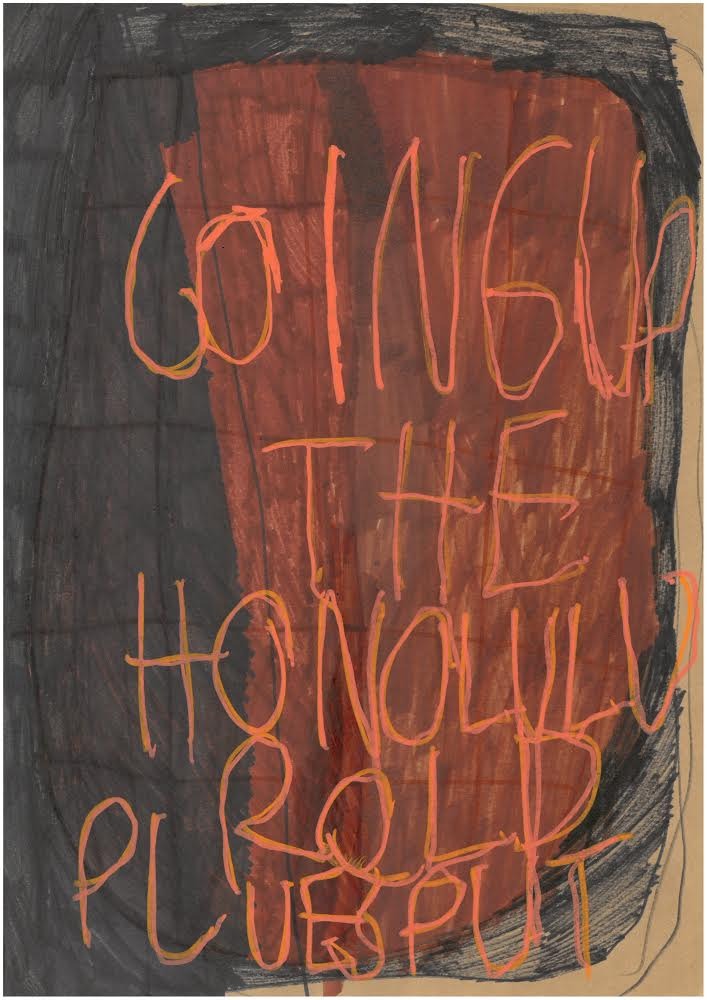 GOING UP
THE
HONOLULU
ROLD
PLUBPUT